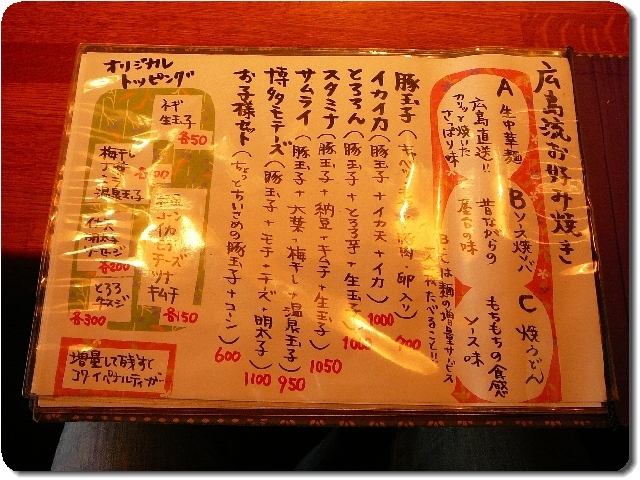 広島流お好み焼き
A 生中華麺
広島直送!!
カリッと焼いた
さっぱり味
B ソース焼ソバ
昔ながらの
屋台の味
C 焼うどん
もちもちの食感
ソース味
は麺の増量サービス
たべること!!
豚玉子(キャベツ 豚肉・卵入り)
イカイカ(豚玉子+イカ天+イカ) 1000
とろろん(豚玉子+とろろ芋+生玉子) 1000
スタミナ(豚玉子+納豆+キムチ+生玉子) 1050
サムライ(豚玉子+大葉+梅干し+温泉玉子) 950
博多モテーズ(豚玉子+モチ+チーズ+明太子) 1100
お子様セット(ちょっとちいさめの豚玉子+コーン) 600
オリジナル
トッピング
ネギ
生玉子
各50
梅干し
温泉玉子
明太子
各200
とろろ
牛スジ
各300
コーン
イカ
チーズ
ツナ
キムチ
各150
増量して残すと
コワイペナルティが